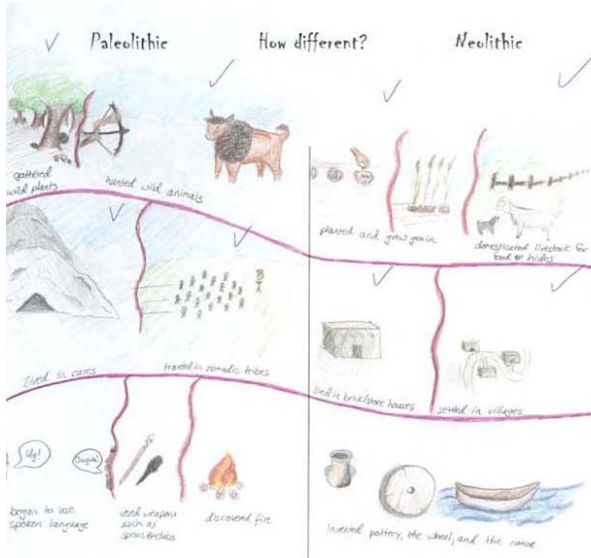 Paleolithic How different? Neolithic
gathered
wild plants
hunted wild animals
planted and grew grain
domesticated livestock for
food & hides
lived in caves
traveled in nomadic tribes
lived in brick/stone houses
settled in villages
Ugg!
began to use
spoken language
used weapons
such as
discovered fire
Invented pottery, the wheel, and the canoe